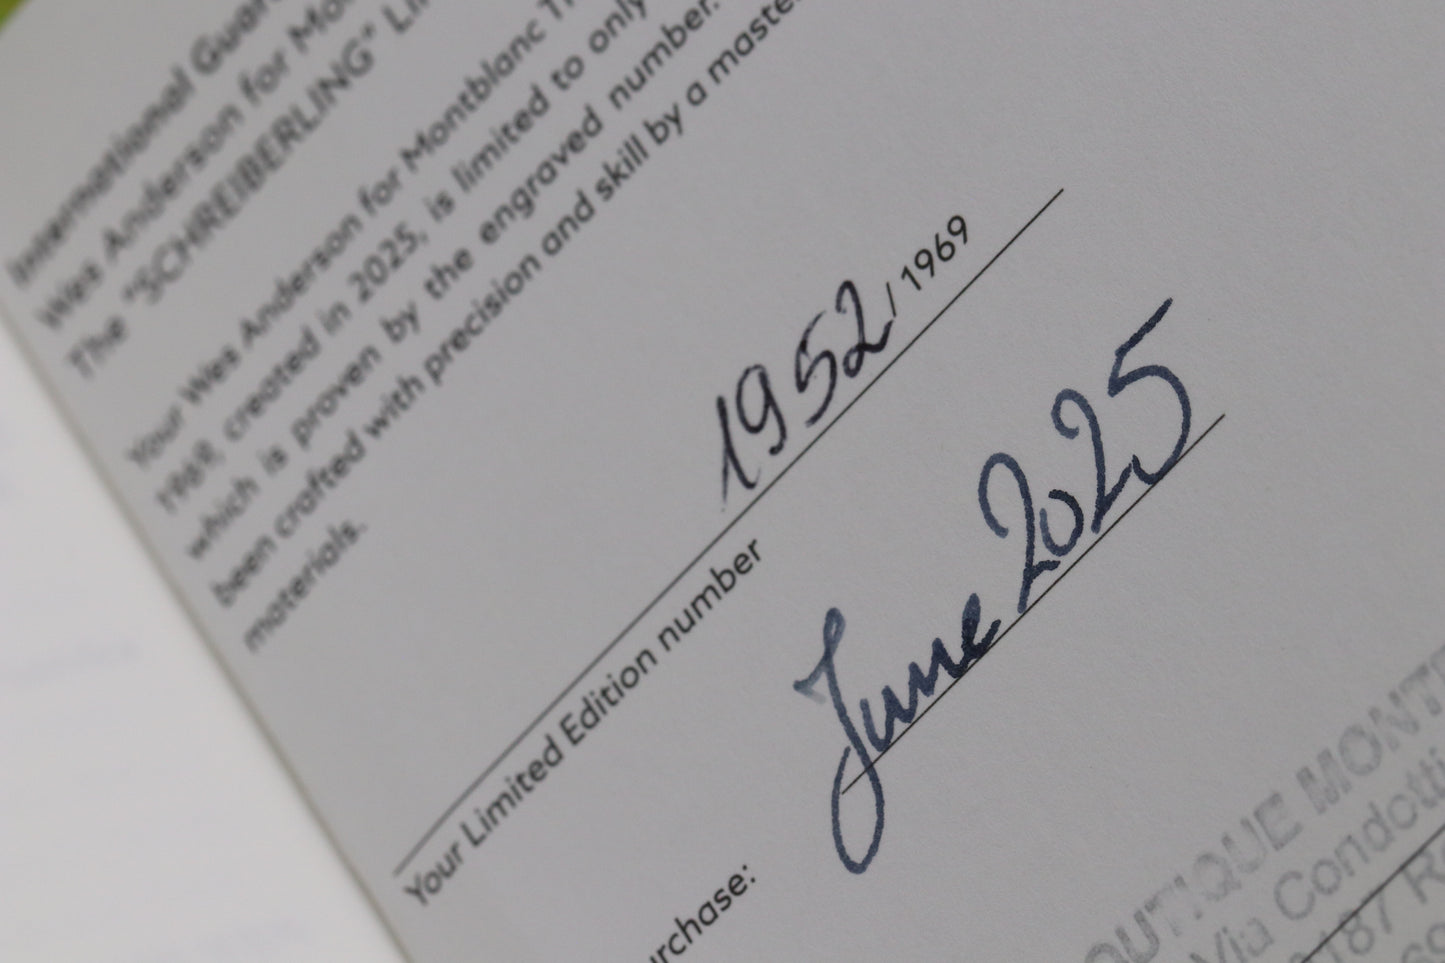 International Guar
Wes Anderson for Mo
The "SCHREIBERLING" Li
Your Wes Anderson for Montblanc T
1969, created in 2025, is limited to only
which is proven by the engraved number.
been crafted with precision and skill by a maste
materials.
1952 / 1969
Your Limited Edition number
June 2025
urchase:
OUTIQUE MONT
Via Condotti
187 R